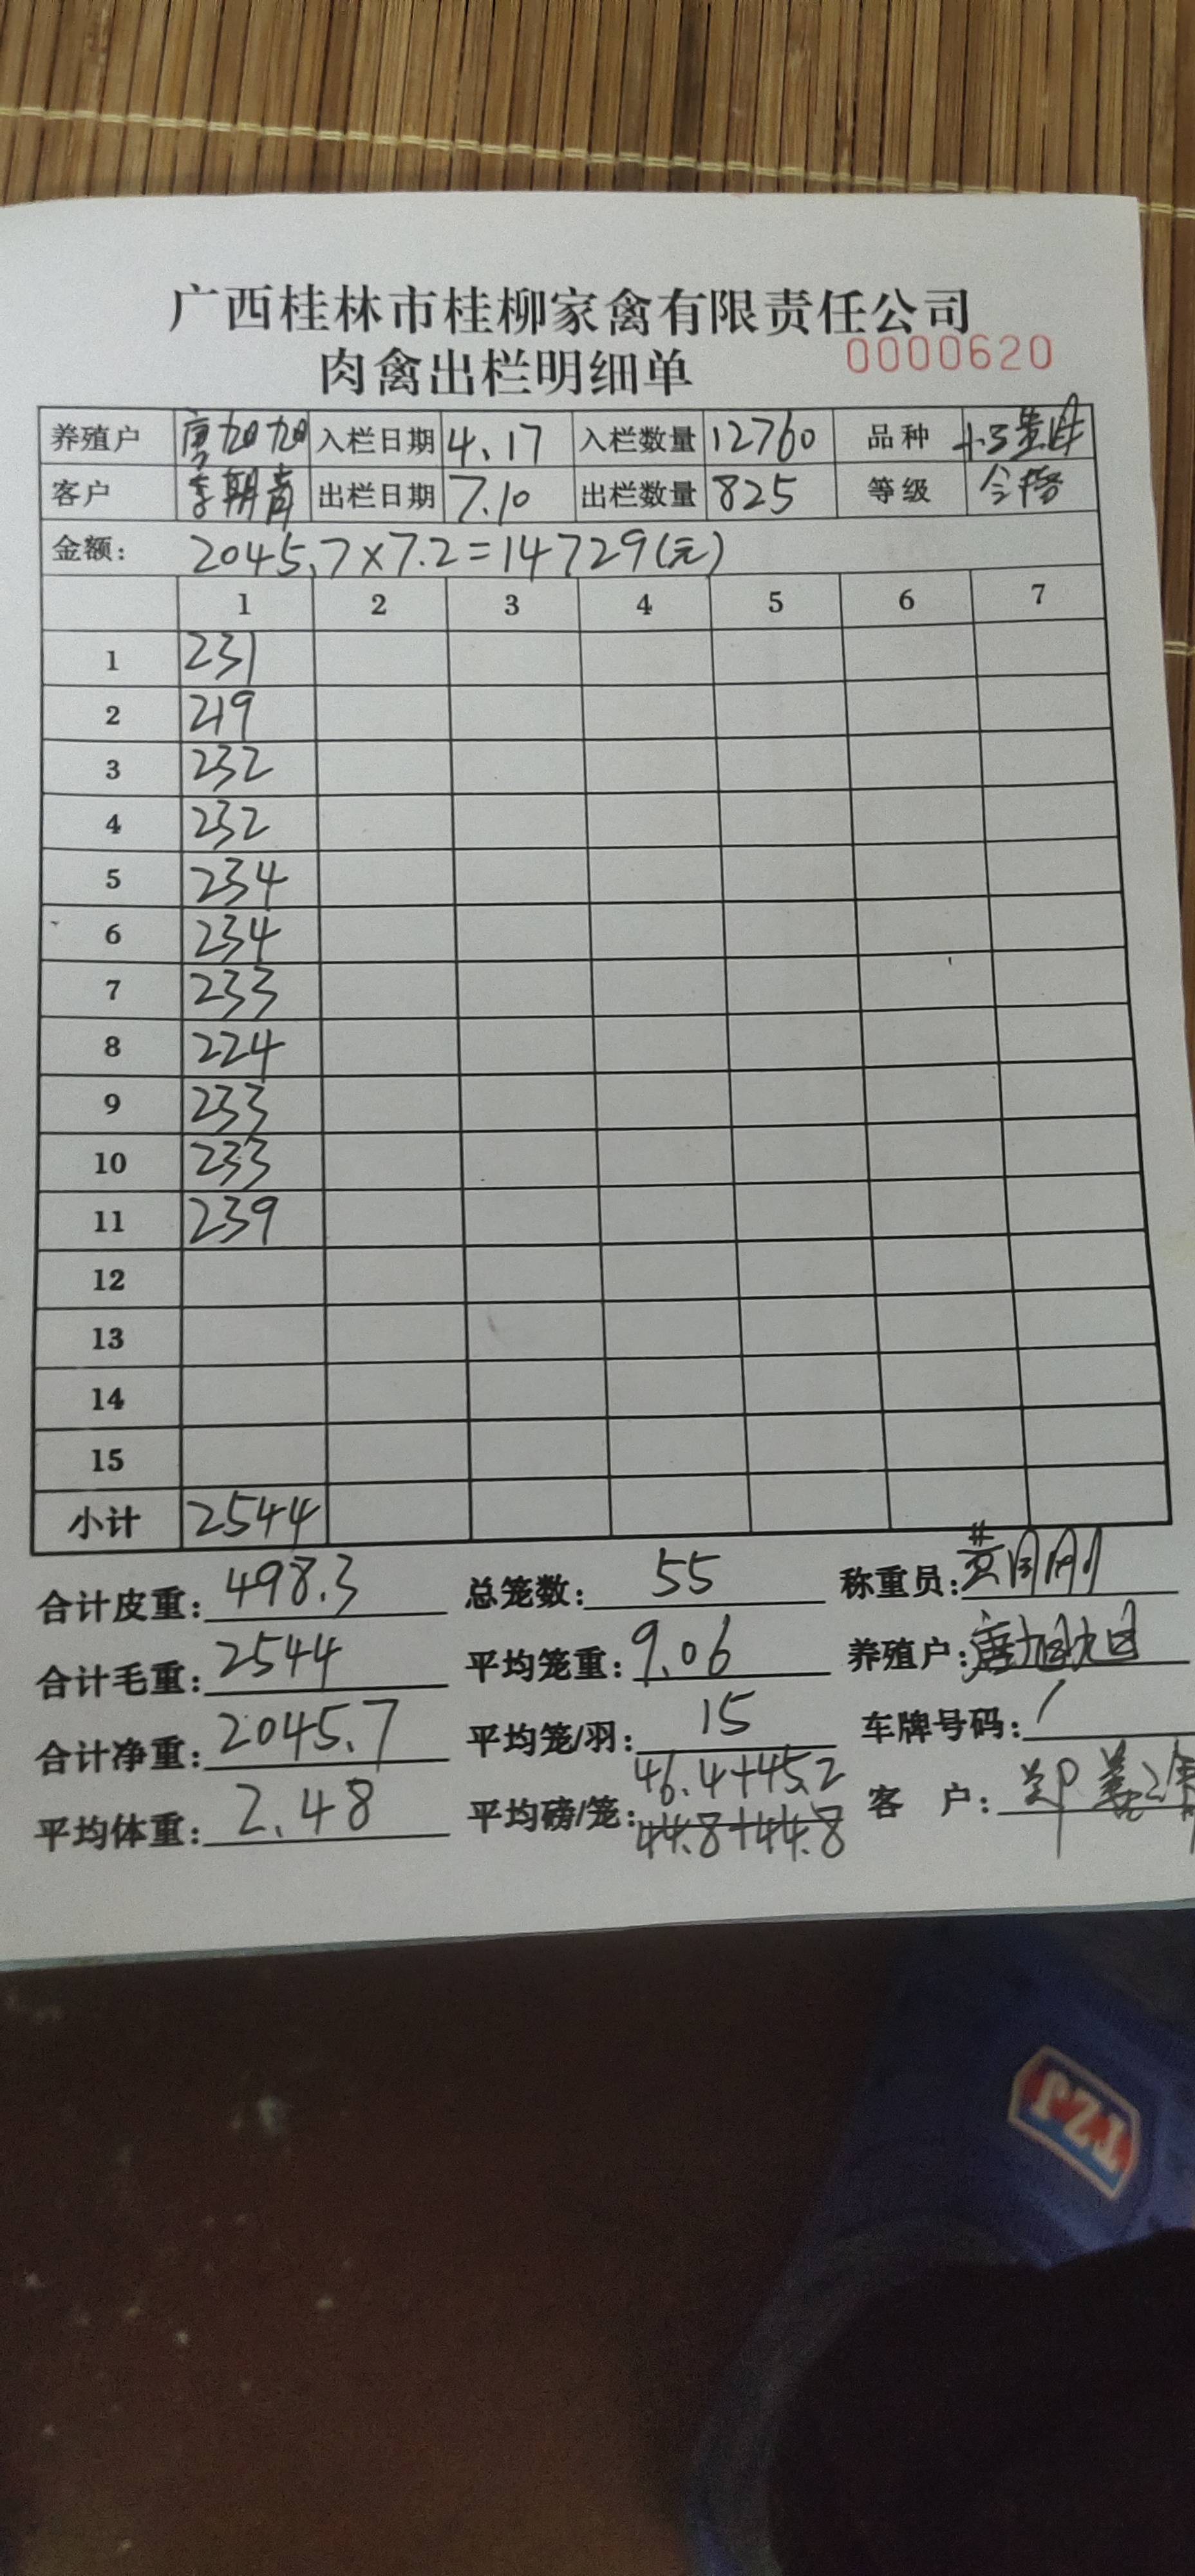 广西桂林市桂柳家禽有限责任公司
肉禽出栏明细单 0000620
养殖户 唐旭旭 入栏日期 4.17 入栏数量 12760 品种
客户 李朝 出栏日期 7.10 出栏数量 825 等级 合格
金额: 2045.7×7.2=14729(元)
1 2 3 4 5 6 7
1 231
2 219
3 232
4 232
5 234
6 234
7 233
8 224
9 233
10 233
11 239
12
13
14
15
小计 2544
合计皮重: 498.3 总笼数: 55 称重员: 黄刚
合计毛重: 2544 平均笼重: 9.06 养殖户: 唐旭旭
合计净重: 2045.7 平均笼/羽: 15 车牌号码: /
46.4+45.2
平均体重: 2.48 平均磅/笼: 44.8+44.8 客 户: 郑
TZJ